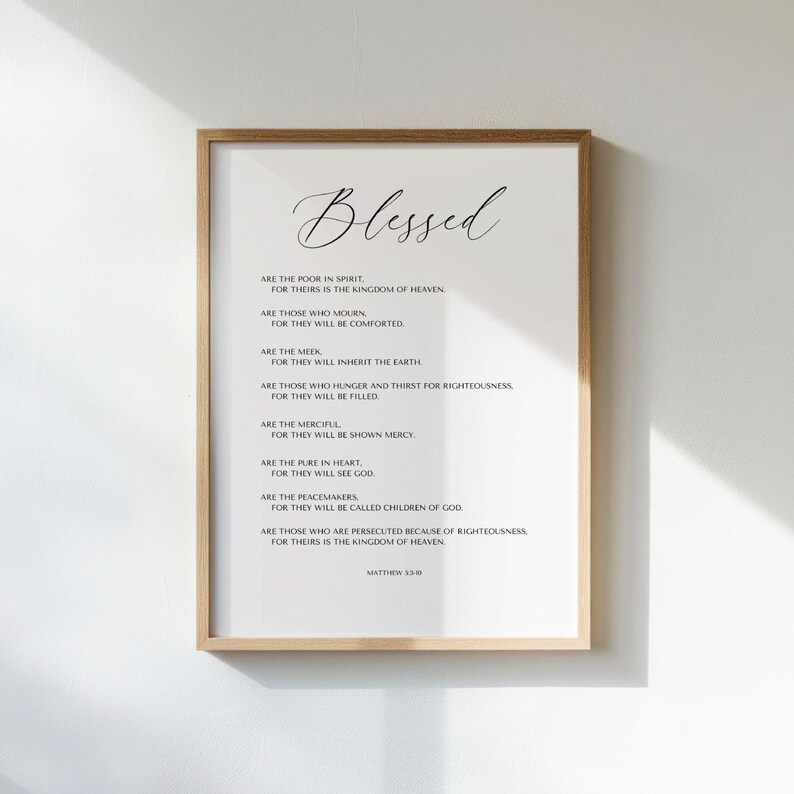 Blessed
ARE THE POOR IN SPIRIT,
FOR THEIRS IS THE KINGDOM OF HEAVEN.
ARE THOSE WHO MOURN,
FOR THEY WILL BE COMFORTED.
ARE THE MEEK,
FOR THEY WILL INHERIT THE EARTH.
ARE THOSE WHO HUNGER AND THIRST FOR RIGHTEOUSNESS,
FOR THEY WILL BE FILLED.
ARE THE MERCIFUL,
FOR THEY WILL BE SHOWN MERCY.
ARE THE PURE IN HEART,
FOR THEY WILL SEE GOD.
ARE THE PEACEMAKERS,
FOR THEY WILL BE CALLED CHILDREN OF GOD.
ARE THOSE WHO ARE PERSECUTED BECAUSE OF RIGHTEOUSNESS,
FOR THEIRS IS THE KINGDOM OF HEAVEN.
MATTHEW 5:3-10